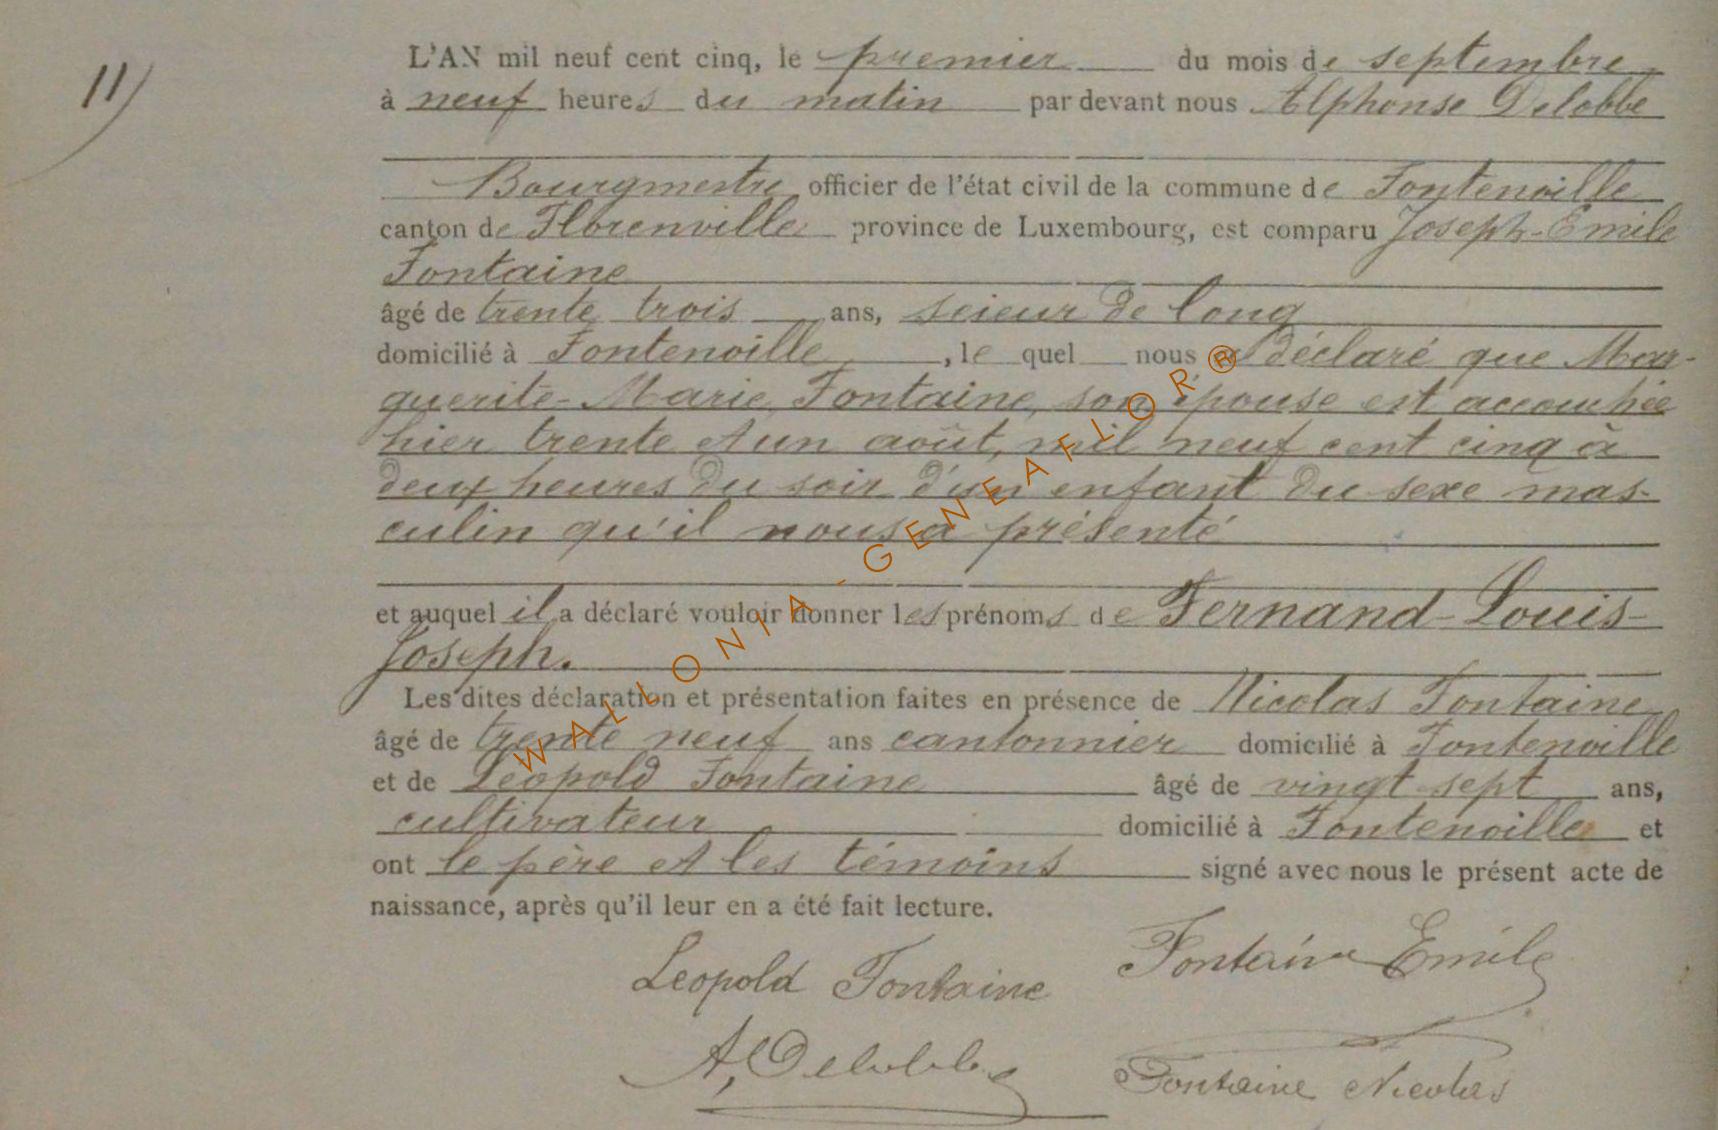 11)
L'AN mil neuf cent cinq, le premier du mois de septembre
à neuf heures du matin par devant nous Alphonse Delobbe
Bourgmestre officier de l'état civil de la commune de Fontenoille
canton de Florenville province de Luxembourg, est comparu Joseph-Emile
Fontaine
âgé de trente trois ans, scieur de long
domicilié à Fontenoille, le quel nous a déclaré que Mar-
guerite-Marie Fontaine, son épouse est accouchée
hier trente et un août, mil neuf cent cinq à
deux heures du soir d'un enfant du sexe mas-
culin qu'il nous a présenté
et auquel il a déclaré vouloir donner les prénoms de Fernand-Louis-
Joseph.
Les dites déclaration et présentation faites en présence de Nicolas Fontaine
âgé de trente neuf ans cantonnier domicilié à Fontenoille
et de Léopold Fontaine âgé de vingt sept ans,
cultivateur domicilié à Fontenoille et
ont le père et les témoins signé avec nous le présent acte de
naissance, après qu'il leur en a été fait lecture.
Leopold Fontaine Fontaine Emile
A, Delobbe Fontaine Nicolas
WALLONIA - GENEAFLOR®